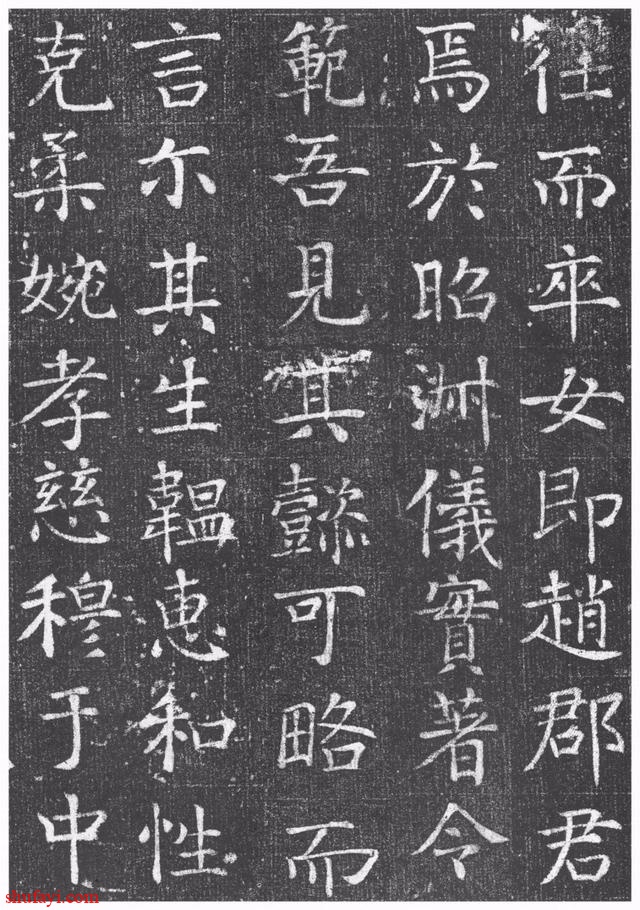 往而卒女即趙郡君
焉於昭淋儀實著令
範吾見其懿可略而
言尒其生韞恵和性
克柔婉孝慈穆于中
shufayi.com